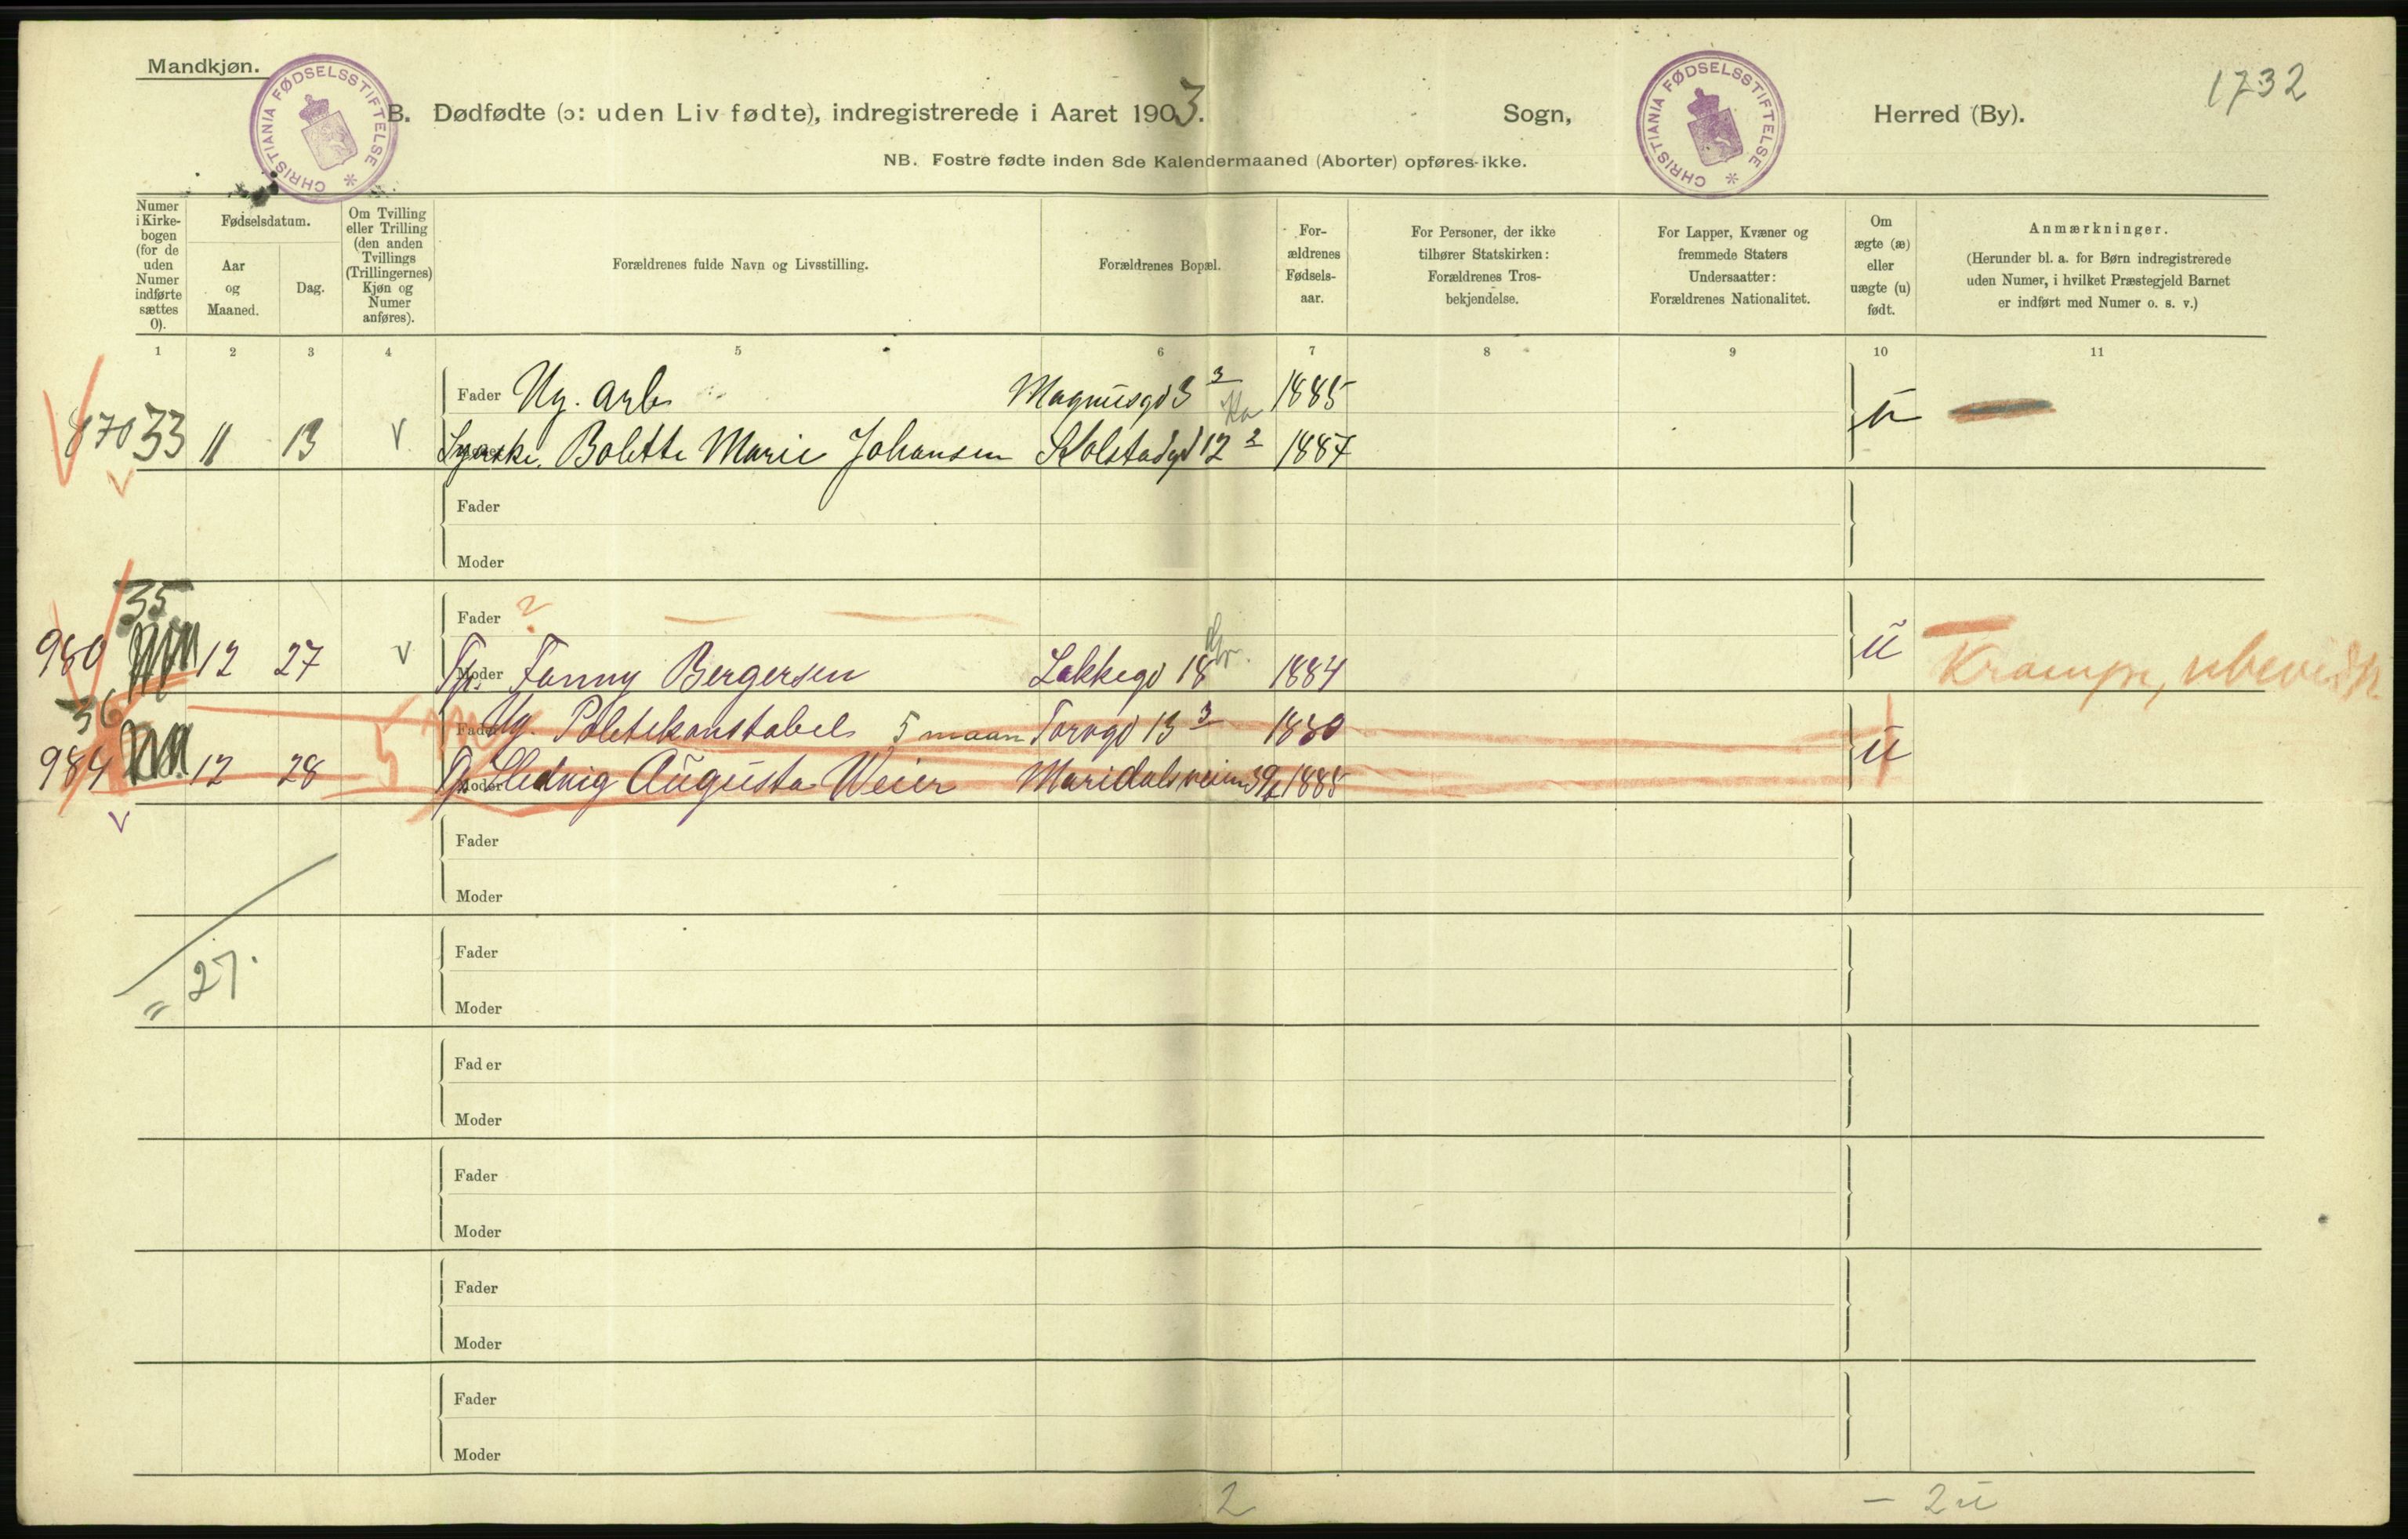 Mandkjøn.
1732
CHRISTIANIA FØDSELSSTIFTELSE *
CHRISTIANIA FØDSELSSTIFTELSE *
B. Dødfødte (ɔ: uden Liv fødte), indregistrerede i Aaret 1903. Sogn, Herred (By).
NB. Fostre fødte inden 8de Kalendermaaned (Aborter) opføres ikke.
Numer i Kirke-bogen (for de uden Numer indførte sættes 0).
Fødselsdatum.
Aar og Maaned.
Dag.
Om Tvilling eller Trilling (den anden Tvillings (Trillingernes) Kjøn og Numer anføres).
Forældrenes fulde Navn og Livsstilling.
Forældrenes Bopæl.
For-ældrenes Fødsels-aar.
For Personer, der ikke tilhører Statskirken: Forældrenes Tros-bekjendelse.
For Lapper, Kvæner og fremmede Staters Undersaatter: Forældrenes Nationalitet.
Om ægte (æ) eller uægte (u) født.
Anmærkninger.
(Herunder bl. a. for Børn indregistrerede uden Numer, i hvilket Præstegjeld Barnet er indført med Numer o. s. v.)
1 2 3 4 5 6 7 8 9 10 11
Fader Ug. Arb Magnusgd 3 3 1885
870 33 11 13 v Syerske. Bolette Marie Johansen Kolstadgd 12 2 1887 u
Fader
Moder
35
Fader ?
980 12 27 v Tp. Moder Fanny Bergersen Lakkegd 18 1884 u Krampe, ubevidst
36
Fader Ug. Politikonstabel 5 maan Torvgd 13 3 1880
984 12 28 5 Tp. Moder Hedvig Augusta Weier Maridalsveien 39 1885 u
v
Fader
Moder
Fader
Moder
= 27.
Fader
Moder
Fader
Moder
Fader
Moder
Fader
Moder
2 - 2 u